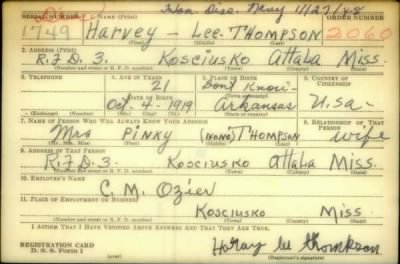 Hon. Disc. Navy 11/27/45
SERIAL NUMBER 1. NAME (Print) ORDER NUMBER
1749 Harvey - Lee - Thompson 2060
(First) (Middle) (Last)
2. ADDRESS (Print)
R.F.D. 3. Kosciusko Attala Miss.
(Number and street or R. F. D. number) (Town) (County) (State)
3. TELEPHONE 4. AGE IN YEARS 5. PLACE OF BIRTH 6. COUNTRY OF CITIZENSHIP
21 Don't Know -
DATE OF BIRTH (Town or county)
Oct. 4 - 1919 Arkansas U.S.a -
(Exchange) (Number) (Mo.) (Day) (Yr.) (State or country)
7. NAME OF PERSON WHO WILL ALWAYS KNOW YOUR ADDRESS 8. RELATIONSHIP OF THAT PERSON
Mrs Pinky (none) Thompson wife
(Mr., Mrs., Miss) (First) (Middle) (Last)
9. ADDRESS OF THAT PERSON
R.F.D. 3. Kosciusko Attala Miss.
(Number and street or R. F. D. number) (Town) (County) (State)
10. EMPLOYER'S NAME
C. M. Ozier
11. PLACE OF EMPLOYMENT OR BUSINESS
Kosciusko Miss.
(Number and street or R. F. D. number) (Town) (County) (State)
I AFFIRM THAT I HAVE VERIFIED ABOVE ANSWERS AND THAT THEY ARE TRUE.
REGISTRATION CARD
D. S. S. Form 1 (Registrant's signature)
Harvy lee thompson